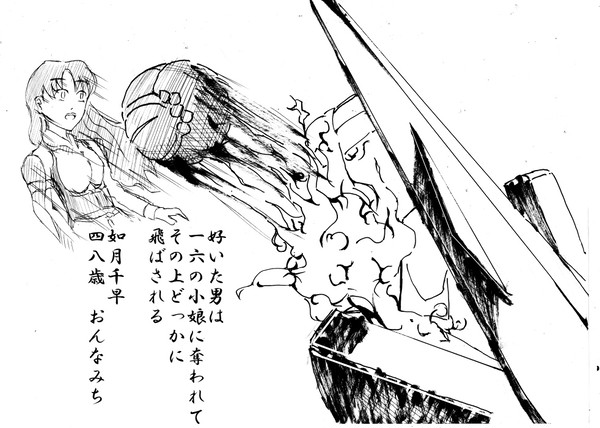 好いた男は
一六の小娘に奪われて
その上どっかに
飛ばされる
如月千早
四八歳　おんなみち